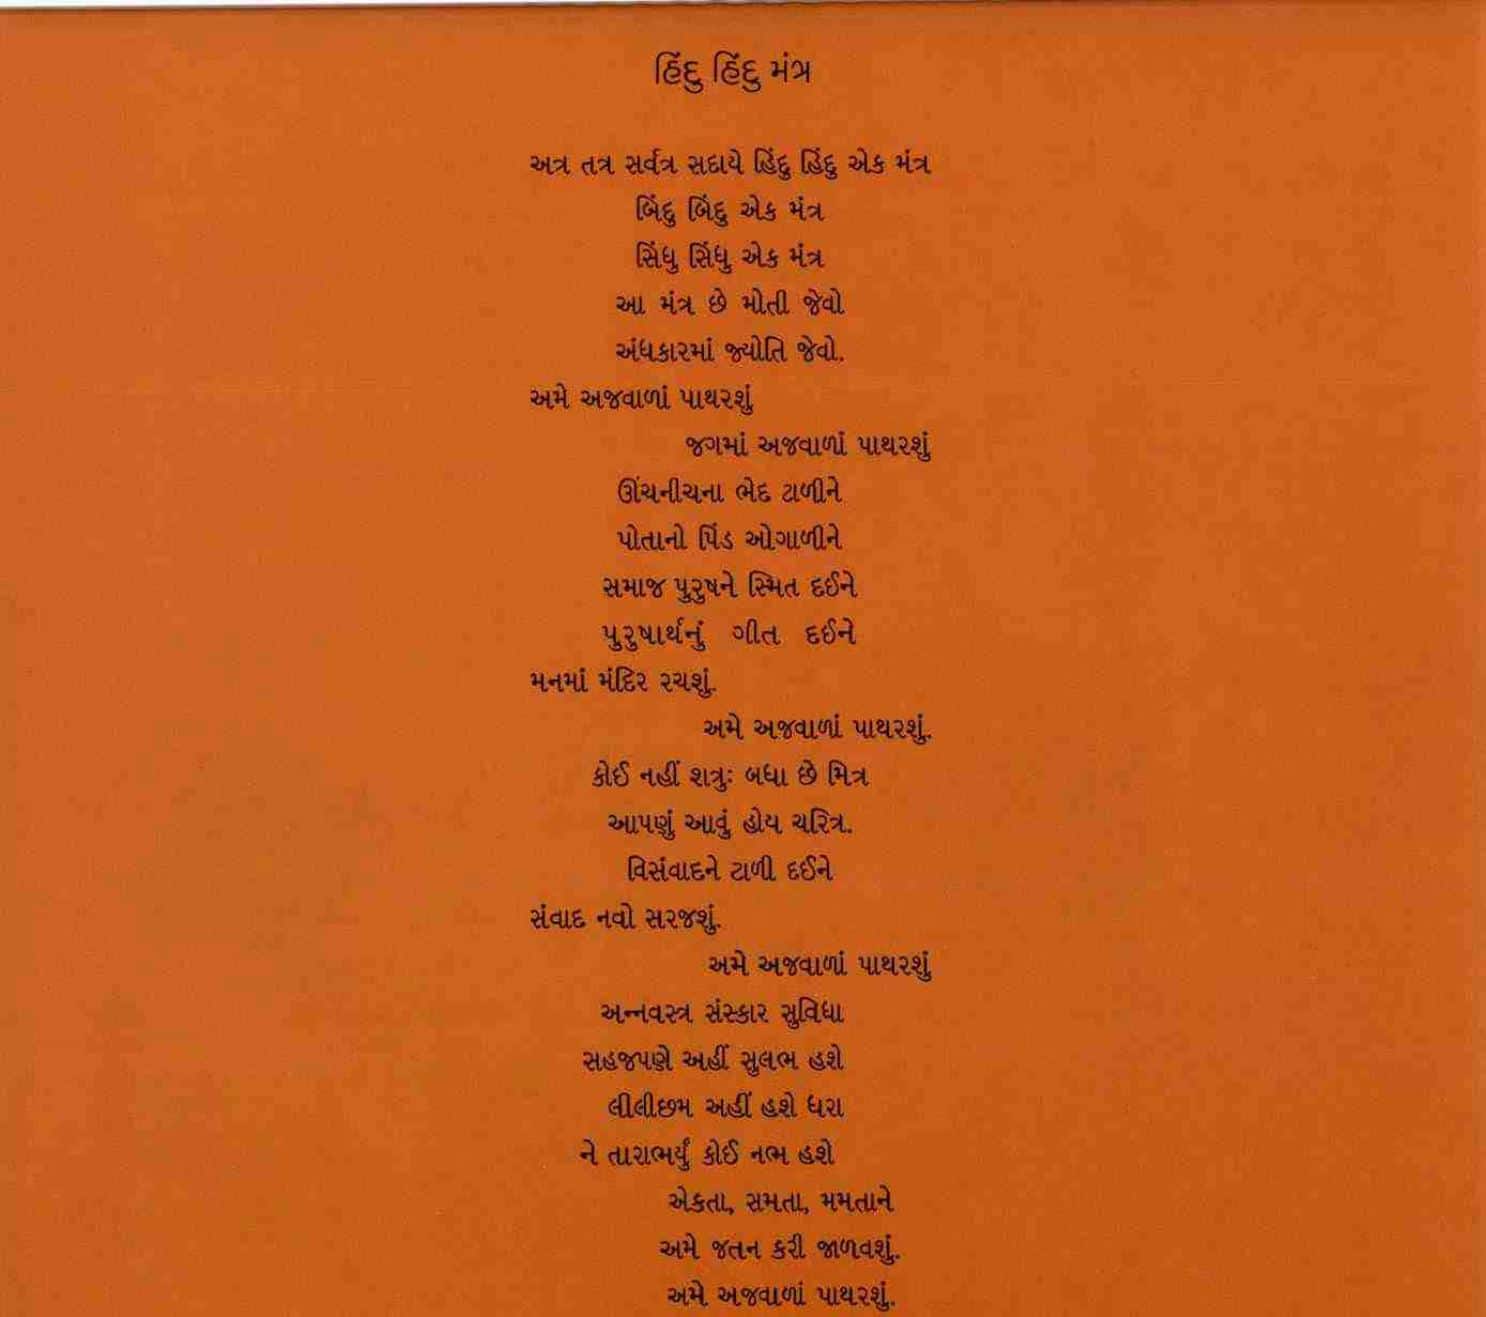 હિંદુ હિંદુ મંત્ર
અત્ર તત્ર સર્વત્ર સદાયે હિંદુ હિંદુ એક મંત્ર
બિંદુ બિંદુ એક મંત્ર
સિંધુ સિંધુ એક મંત્ર
આ મંત્ર છે મોતી જેવો
અંધકારમાં જ્યોતિ જેવો.
અમે અજવાળાં પાથરશું
જગમાં અજવાળાં પાથરશું
ઊંચનીચના ભેદ ટાળીને
પોતાનો પિંડ ઓગાળીને
સમાજ પુરુષને સ્મિત દઈને
પુરુષાર્થનું ગીત દઈને
મનમાં મંદિર રચશું.
અમે અજવાળાં પાથરશું.
કોઈ નહીં શત્રુઃ બધા છે મિત્ર
આપણું આવું હોય ચરિત્ર.
વિસંવાદને ટાળી દઈને
સંવાદ નવો સરજશું.
અમે અજવાળાં પાથરશું
અન્નવસ્ત્ર સંસ્કાર સુવિધા
સહજપણે અહીં સુલભ હશે
લીલીછમ અહીં હશે ધરા
ને તારાભર્યું કોઈ નભ હશે
એકતા, સમતા, મમતાને
અમે જતન કરી જાળવશું.
અમે અજવાળાં પાથરશું.